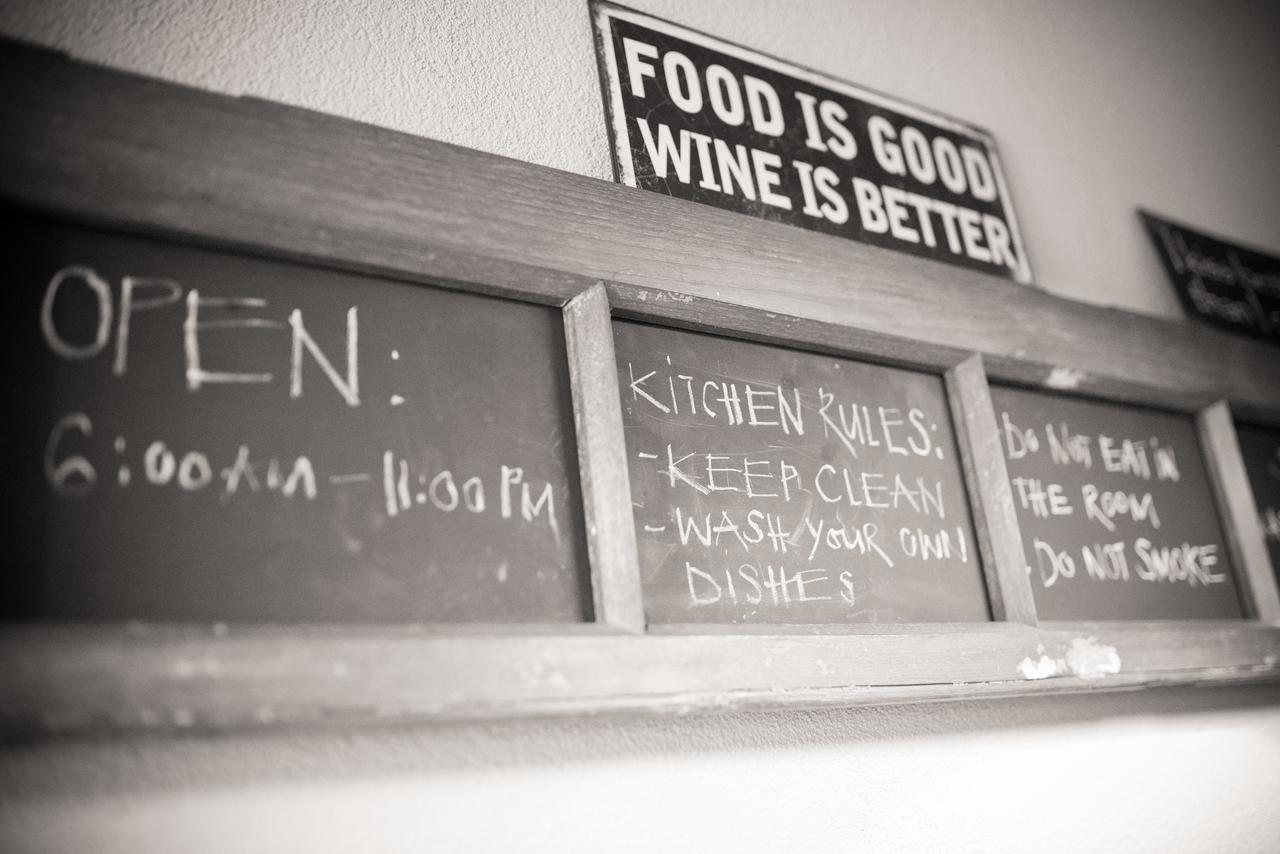 FOOD IS GOOD
WINE IS BETTER
OPEN:
6:00AM – 11:00 PM
KiTCHEN RULES:
- KEEP CLEAN
- WASH YouR OWN
DISHES
DO NOT EAT iN
THE ROOM
. DO NOT SMOKE